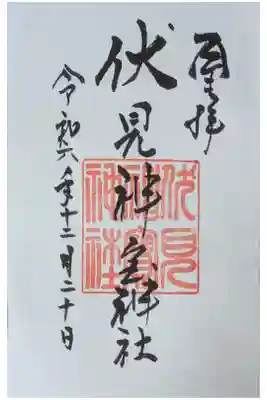 奉拝
伏見神宝神社
令和六年十二月二十日
伏見
神寶
神社